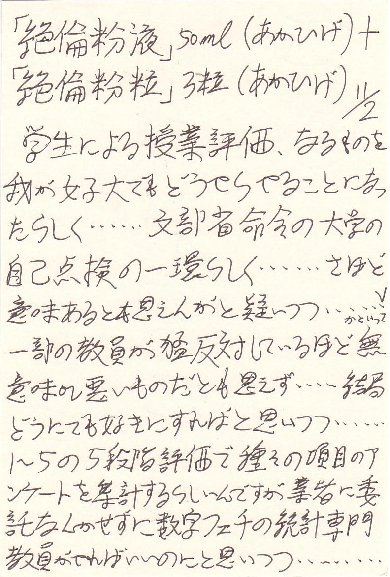 「絶倫粉液」50ml（あかひげ）＋
「絶倫粉粒」3粒（あかひげ） 11/2
学生による授業評価、なるものを
我が女子大でもどうやらやることになっ
たらしく……文部省命令の大学の
自己点検の一環らしく……さほど
意味あるとも思えんがと疑いつつ……かといって
一部の教員が猛反対しているほど無
意味や悪いものだとも思えず……結局
どうにでも好きにすればと思いつつ……
1〜5の5段階評価で種々の項目のア
ンケートを集計するらしいんですが業者に委
託なんかせずに数字フェチの統計専門
教員がやればいいのにと思いつつ………